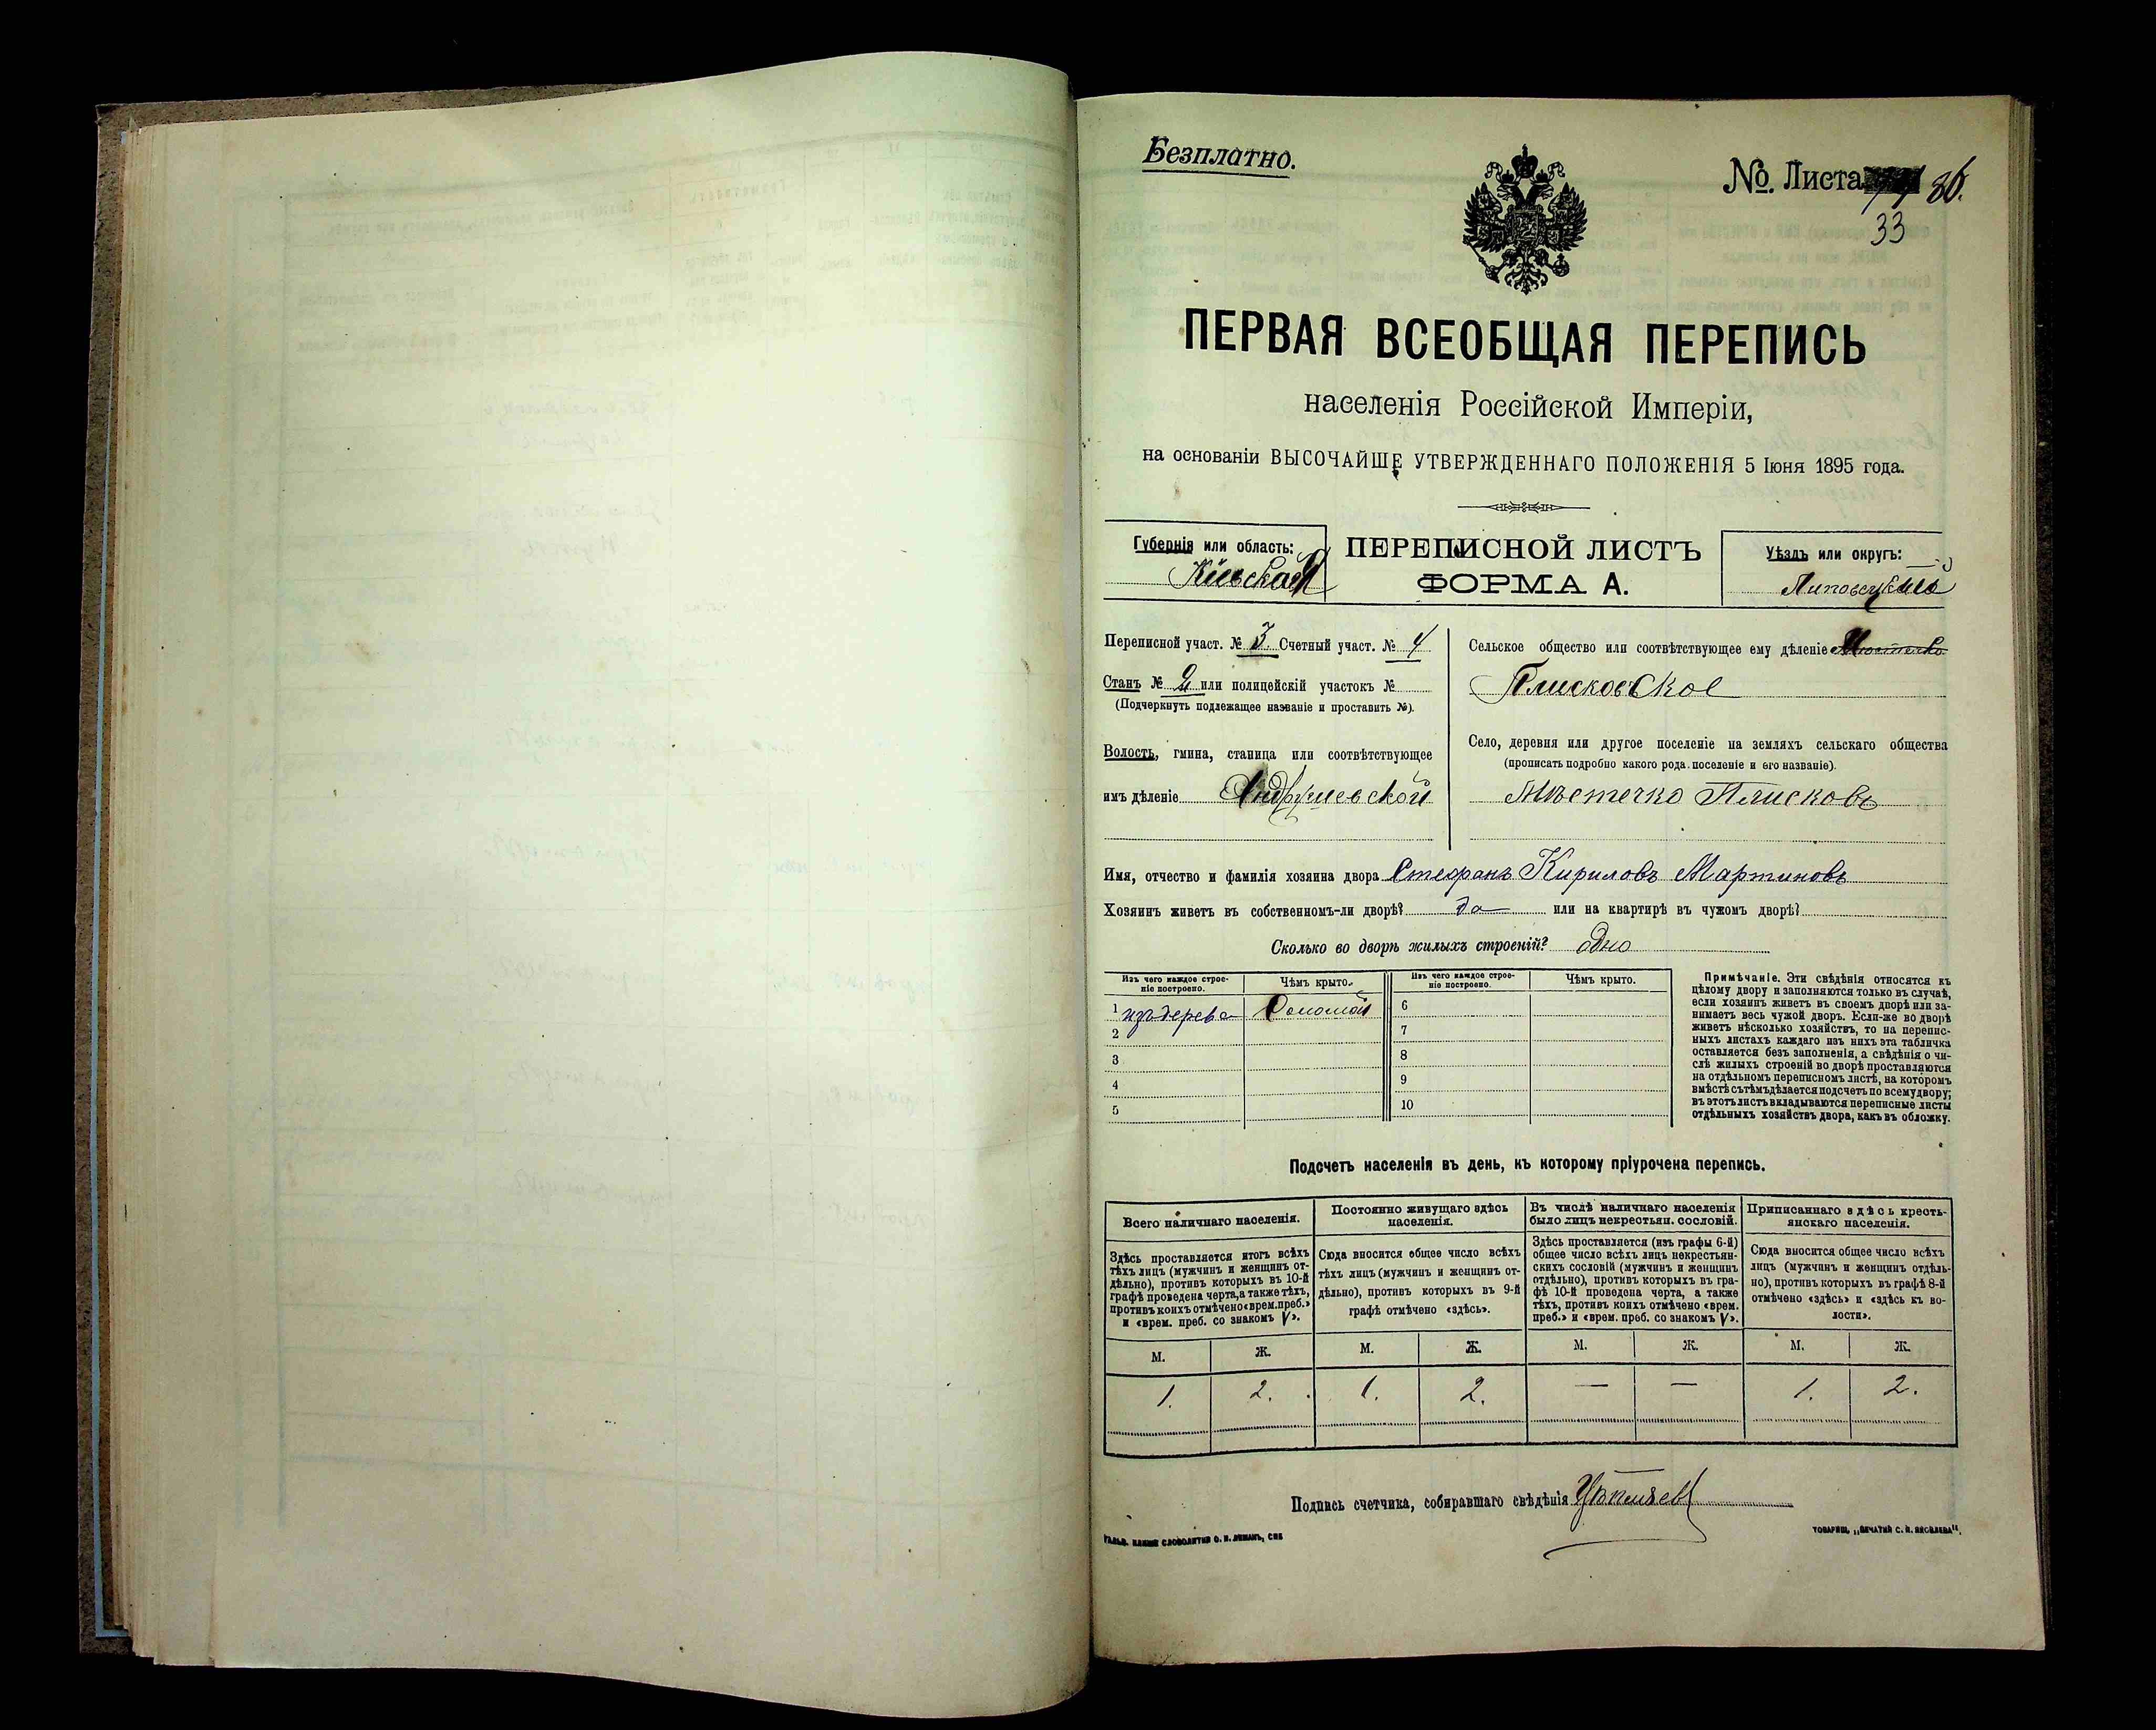 Безплатно.
№. Листа 86.
33
ПЕРВАЯ ВСЕОБЩАЯ ПЕРЕПИСЬ
населенія Россійской Имперіи,
на основаніи ВЫСОЧАЙШЕ УТВЕРЖДЕННАГО ПОЛОЖЕНІЯ 5 Іюня 1895 года.
Губернія или область:
Кіевская
ПЕРЕПИСНОЙ ЛИСТЪ
ФОРМА А.
Уѣздъ или округъ:
Липовецкій
Переписной участ. № 3. Счетный участ. № 4
Станъ № 2 или полицейскій участокъ №
(Подчеркнуть подлежащее названіе и проставить №).
Волость, гмина, станица или соотвѣтствующее
имъ дѣленіе Андрушевской
Сельское общество или соотвѣтствующее ему дѣленіе Мѣстечко
Плисковское
Село, деревня или другое поселеніе на земляхъ сельскаго общества
(прописать подробно какого рода поселеніе и его названіе).
Мѣстечко Плисковъ
Имя, отчество и фамилія хозяина двора Стефанъ Кириловъ Мартиновъ
Хозяинъ живетъ въ собственномъ-ли дворѣ? да или на квартирѣ въ чужомъ дворѣ?
Сколько во дворѣ жилыхъ строеній? одно
Изъ чего каждое строе-
ніе построено.
Чѣмъ крыто.
Изъ чего каждое строе-
ніе построено.
Чѣмъ крыто.
1 изъ дерева Соломой
2
3
4
5
6
7
8
9
10
Примѣчаніе. Эти свѣдѣнія относятся къ
цѣлому двору и заполняются только въ случаѣ,
если хозяинъ живетъ въ своемъ дворѣ или за-
нимаетъ весь чужой дворъ. Если-же во дворѣ
живетъ нѣсколько хозяйствъ, то на перепис-
ныхъ листахъ каждаго изъ нихъ эта табличка
оставляется безъ заполненія, а свѣдѣнія о чи-
слѣ жилыхъ строеній во дворѣ проставляются
на отдѣльномъ переписномъ листѣ, на которомъ
вмѣстѣ съ тѣмъ дѣлается подсчетъ по всему двору;
въ этотъ листъ вкладываются переписные листы
отдѣльныхъ хозяйствъ двора, какъ въ обложку.
Подсчетъ населенія въ день, къ которому пріурочена перепись.
Всего наличнаго населенія.
Здѣсь проставляется итогъ всѣхъ
тѣхъ лицъ (мужчинъ и женщинъ от-
дѣльно), противъ которыхъ въ 10-й
графѣ проведена черта, а также тѣхъ,
противъ коихъ отмѣчено «врем. преб.»
и «врем. преб. со знакомъ V».
Постоянно живущаго здѣсь
населенія.
Сюда вносится общее число всѣхъ
тѣхъ лицъ (мужчинъ и женщинъ от-
дѣльно), противъ которыхъ въ 9-й
графѣ отмѣчено «здѣсь».
Въ числѣ наличнаго населенія
было лицъ некрестьян. сословій.
Здѣсь проставляется (изъ графы 6-й)
общее число всѣхъ лицъ некрестьян-
скихъ сословій (мужчинъ и женщинъ
отдѣльно), противъ которыхъ въ гра-
фѣ 10-й проведена черта, а также
тѣхъ, противъ коихъ отмѣчено «врем.
преб.» и «врем. преб. со знакомъ V».
Приписаннаго здѣсь кресть-
янскаго населенія.
Сюда вносится общее число всѣхъ
лицъ (мужчинъ и женщинъ отдѣль-
но), противъ которыхъ въ графѣ 8-й
отмѣчено «здѣсь» и «здѣсь къ во-
лости».
М. Ж. М. Ж. М. Ж. М. Ж.
1. 2. 1. 2. — — 1. 2.
Подпись счетчика, собиравшаго свѣдѣнія
ТОВАРИЩ. „ПЕЧАТНЯ С. П. ЯКОВЛЕВА“.